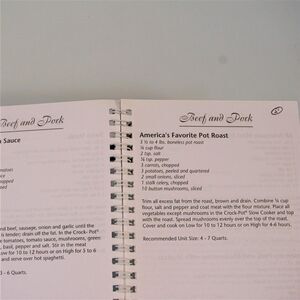 Beef and Pork
Sauce
matoes
ced
opped
d
nd beef, sausage, onion and garlic until the
is tender; drain off the fat. In the Crock-Pot®
tomatoes, tomato sauce, mushrooms, green
, basil, pepper and salt. Stir in the meat
on Low for 10 to 12 hours or on High for 5 to 6
and serve over hot spaghetti.
3 - 6 Quarts.
Beef and Pork
America's Favorite Pot Roast
3 ½ to 4 lbs. boneless pot roast
¼ cup flour
2 tsp. salt
⅛ tsp. pepper
3 carrots, chopped
3 potatoes, peeled and quartered
2 small onions, sliced
1 stalk celery, chopped
10 button mushrooms, sliced
Trim all excess fat from the roast, brown and drain. Combine ¼ cup
flour, salt and pepper and coat meat with the flour mixture. Place all
vegetables except mushrooms in the Crock-Pot® Slow Cooker and top
with the roast. Spread mushrooms evenly over the top of the roast.
Cover and cook on Low for 10 to 12 hours or on High for 4-6 hours.
Recommended Unit Size: 4 - 7 Quarts.